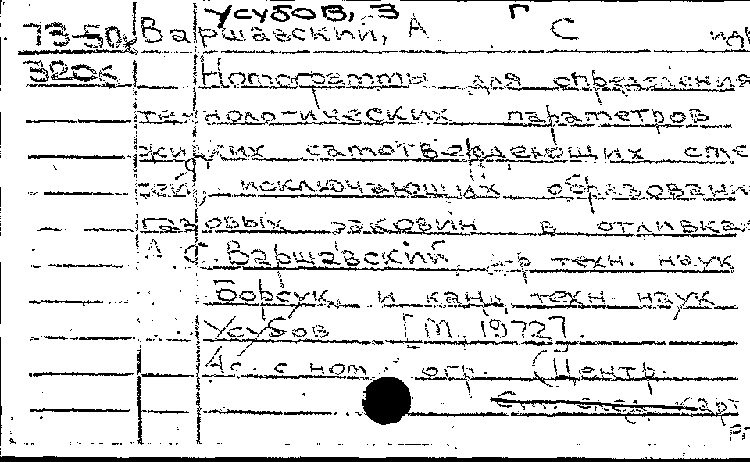 Усубов, З Г
73-50 Варшавский, А С и др
3206 Номограммы для определения
технологических параметров
жидких самотвердеющих сме
сей, исключающих образовани
газовых раковин в отливка
А. С. Варшавский, д-р техн. наук
Борсук, и канд. техн. наук
Усубов [М, 1972].
4с. с ном огр. (Центр.
карт